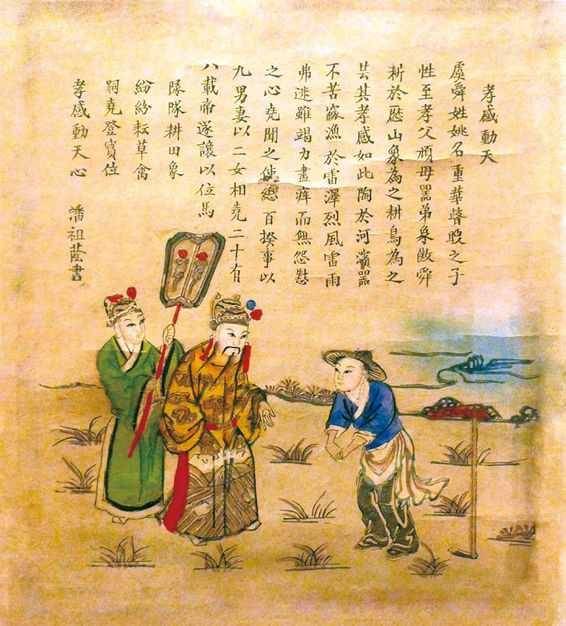 孝感動天
虞舜姓姚名重華瞽瞍之子
性至孝父頑母嚚弟象傲舜
耕於歷山象為之耕鳥為之
芸其孝感如此陶於河濱器
不苦窳漁於雷澤烈風雷雨
弗迷雖竭力盡瘁而無怨懟
之心堯聞之使總百揆事以
九男妻以二女相堯二十有
八載帝遂讓以位馬
隊隊耕田象
紛紛耘草禽
祠堯登寶位
孝感動天心 潘祖蔭書